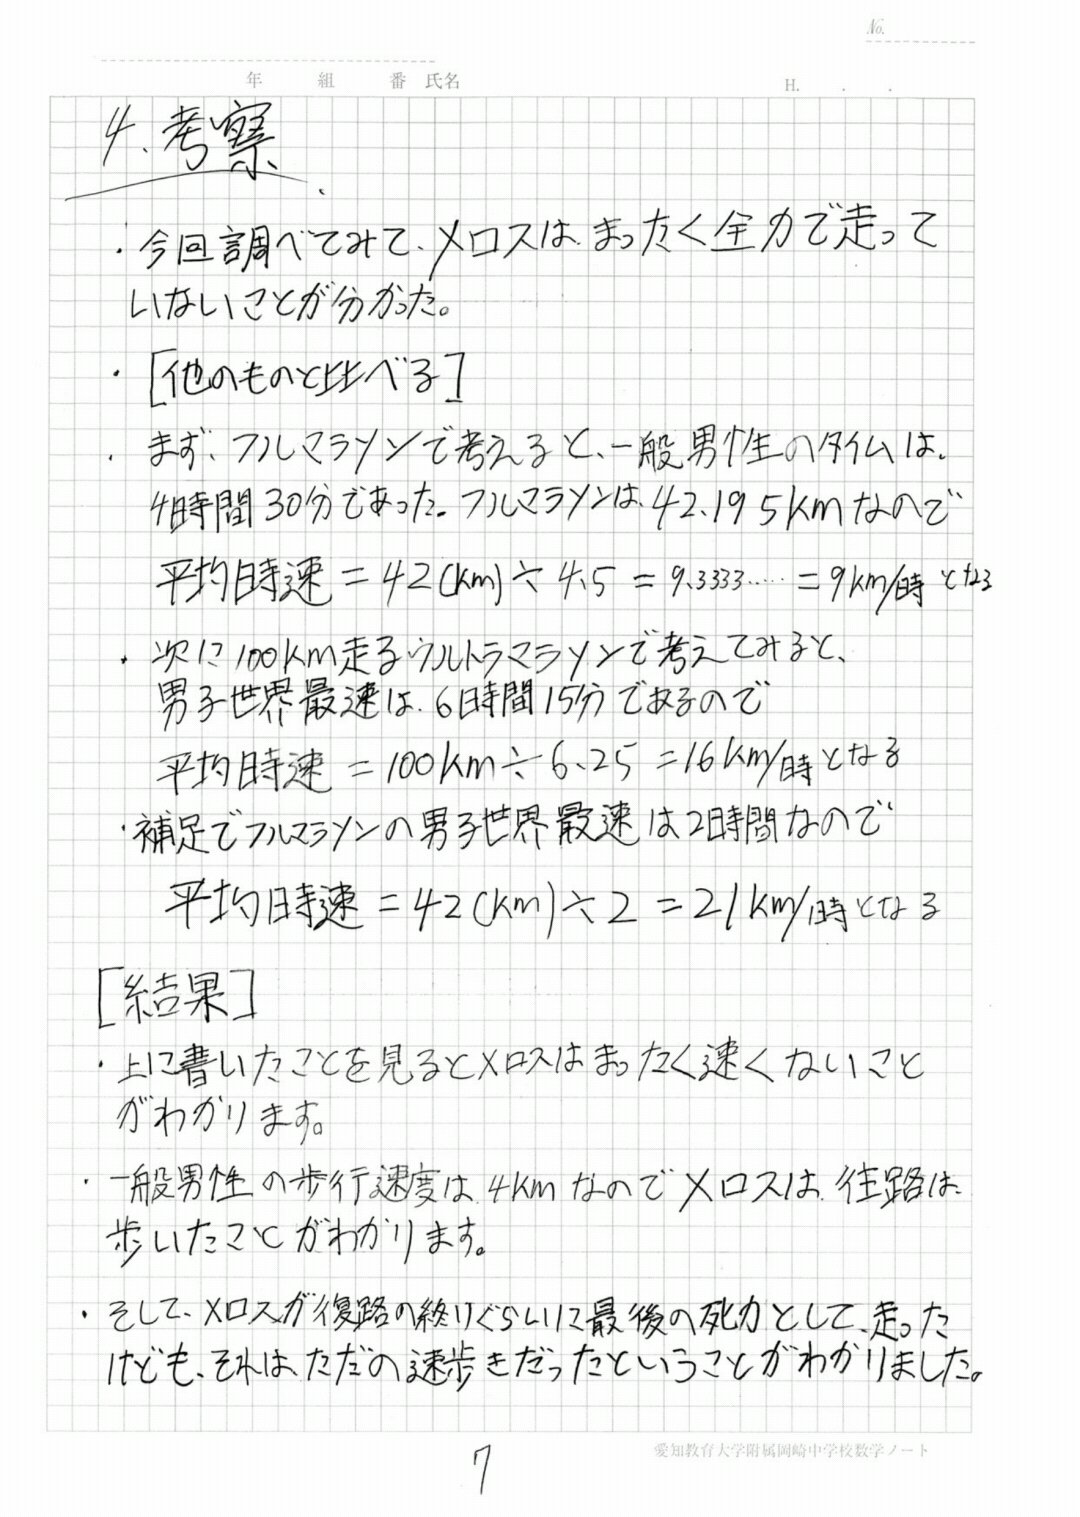 No.
年 組 番 氏名 H. . .
4. 考察
・今回調べてみて、メロスは、まったく全力で走って
いないことが分かった。
・[他のものと比べる]
・まず、フルマラソンで考えると、一般男性のタイムは、
4時間30分であった。フルマラソンは、42.195kmなので
平均時速 = 42(km)÷4.5 = 9.3333…… = 9km/時 となる
・次に100km走るウルトラマラソンで考えてみると、
男子世界最速は、6時間15分であるので
平均時速 = 100km÷6.25 = 16km/時となる
・補足でフルマラソンの男子世界最速は2時間なので
平均時速 = 42(km)÷2 = 21km/時となる
[結果]
・上に書いたことを見るとメロスはまったく速くないこと
がわかります。
・一般男性の歩行速度は、4kmなのでメロスは、往路は、
歩いたことがわかります。
・そして、メロスが復路の終りぐらいに最後の死力として、走った
けども、それは、ただの速歩きだったということがわかりました。
愛知教育大学附属岡崎中学校数学ノート
7